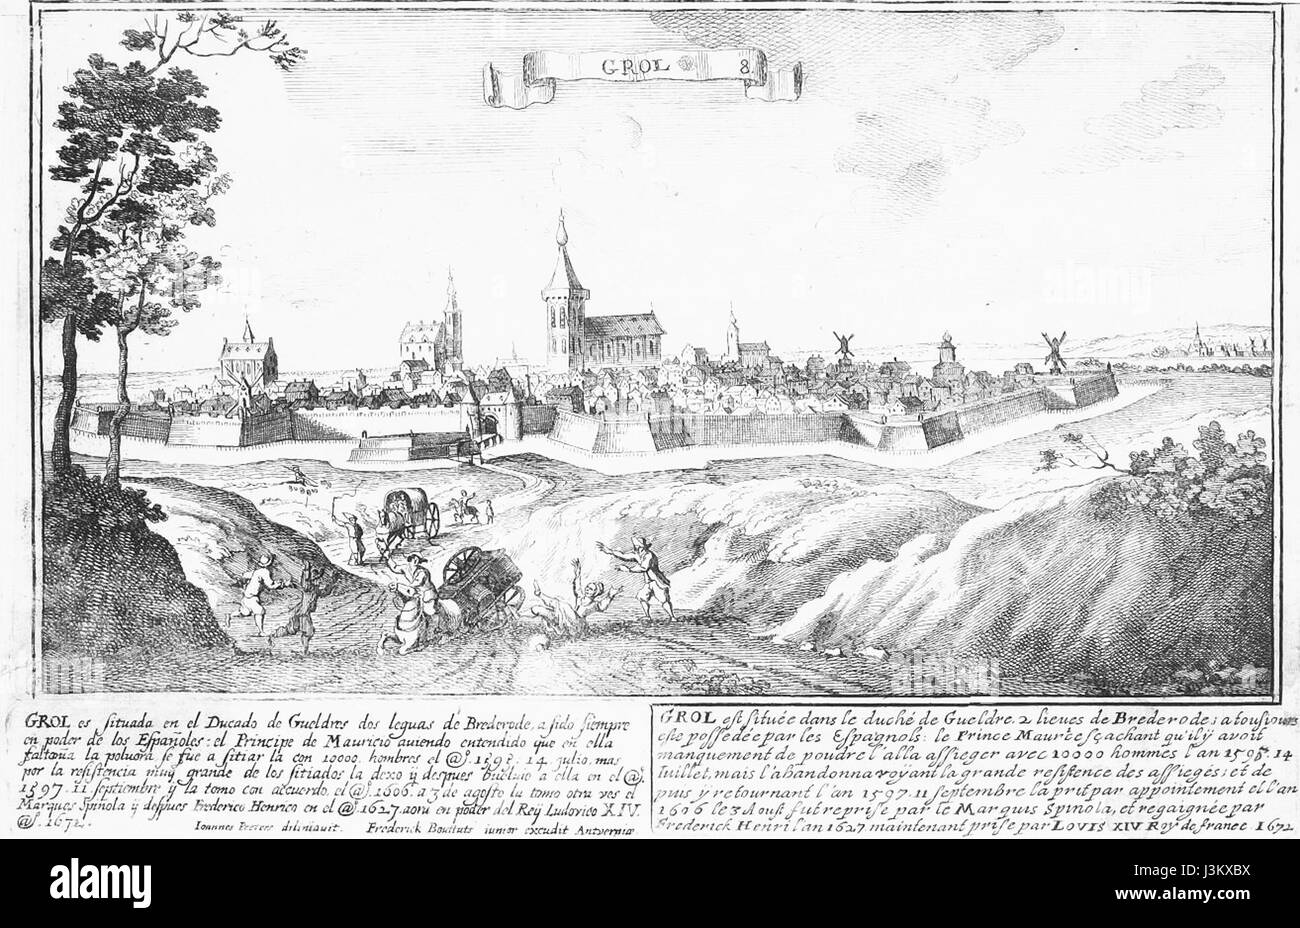 GROL 8.
GROL es situada en el Ducado de Gueldres dos leguas de Brederode, a sido siempre
en poder de los Españoles: el Principe de Mauricio auiendo entendido que en ella
faltaua la poluora se fue a sitiar la con 10000. hombres el @. 1595. 14. julio, mas
por la resistencia muy grande de los sitiados la dexo ÿ despues bueluio a ella en el @.
1597. 11. septiembre ÿ la tomo con acuerdo, el @. 1606. a 3 de agosto lu tomo otra ves el
Marques Spinola ÿ despues Frederico Henrico en el @. 1627. aora en poder del Reÿ Ludovico XIV.
@. 1672.
Ioannes Peeters diliniauit. Frederick Bouttats iunior excudit Antverpiæ
GROL est située dans le duché de Gueldre, 2 lieves de Brederode; a tousiours
este possedée par les Espagnols: le Prince Maurice sçachant qu'il ÿ avoit
manquement de poudre l'alla assieger avec 10000 hommes l'an 1595. 14
Iuillet, mais l'abandonna voÿant la grande resistence des assiegés; et de
puis ÿ retournant l'an 1597. 11 septembre la prit par appointement et l'an
1606 le 3 Aoust fut reprise par le Marquis Spinola, et regaignée par
Frederick Henri l'an 1627 maintenant prise par LOVIS XIV Roÿ de france. 1672
alamy
alamy
alamy
alamy
alamy
alamy stock photo
J3KXBX
www.alamy.com